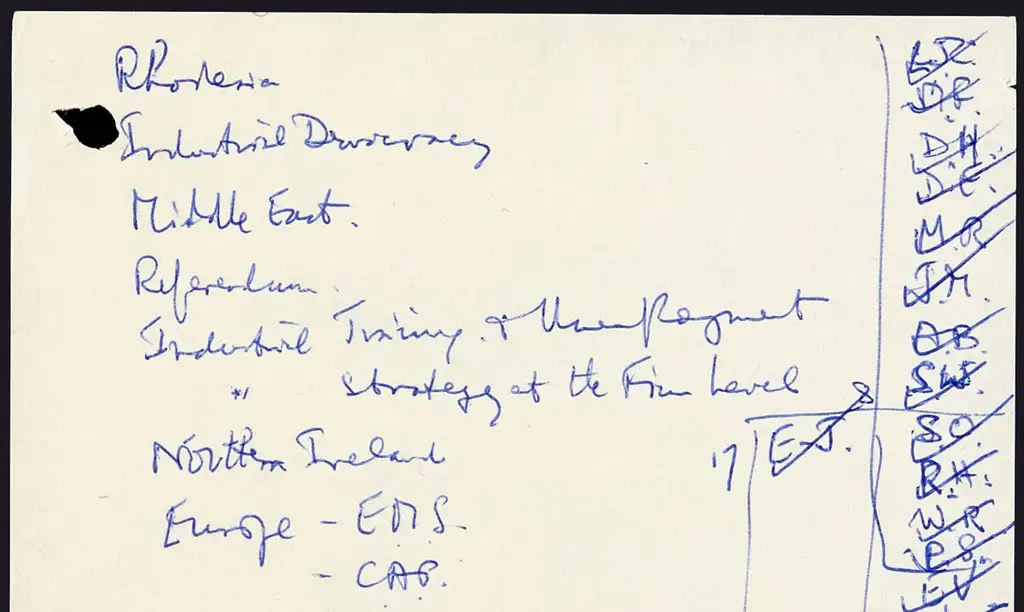 Rhodesia
Industrial Democracy
Middle East.
Referendum.
Industrial Training & Unemployment
" Strategy at the Firm Level
Northern Ireland
Europe - EMS.
- CAP.
8
17 E.J.
D.F.
D.H.
D.E.
M.R.
J.M.
A.B.
S.W.
S.O.
R.H.
W.R.
P.S.
E.V.